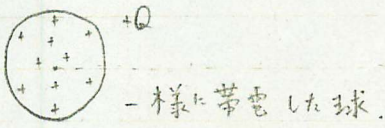 +Q
一様に帯電した球.